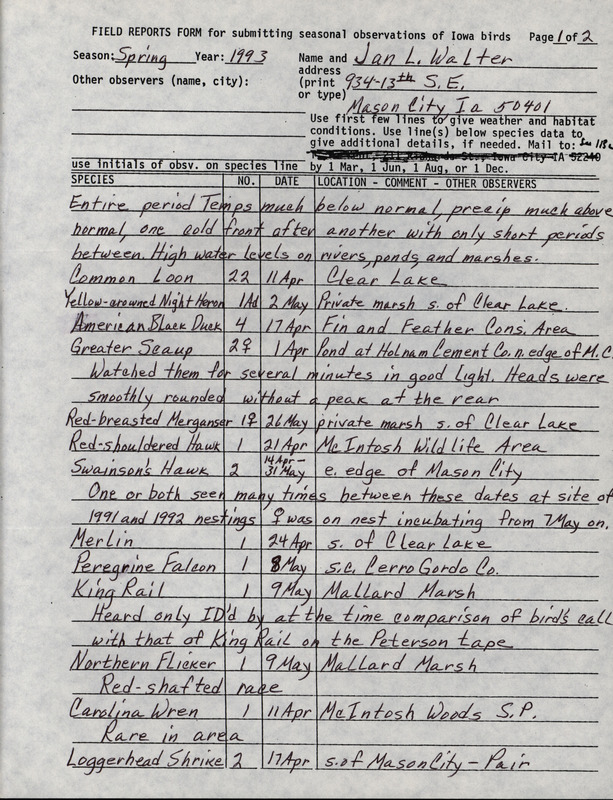 FIELD REPORTS FORM for submitting seasonal observations of Iowa birds Page 1 of 2
Season: Spring Year: 1993 Name and Jan L. Walter
address
Other observers (name, city): (print 934-13th S.E.
or type) Mason City Ia 50401
Use first few lines to give weather and habitat
conditions. Use line(s) below species data to
give additional details, if needed. Mail to:
Iowa City IA 52240
use initials of obsv. on species line by 1 Mar, 1 Jun, 1 Aug, or 1 Dec.
SPECIES NO. DATE LOCATION - COMMENT - OTHER OBSERVERS
Entire period Temps much below normal, precip much above
normal, one cold front after another with only short periods
between. High water levels on rivers, ponds, and marshes.
Common Loon 22 11 Apr Clear Lake
Yellow-crowned Night Heron 1Ad 2 May Private marsh s. of Clear Lake.
American Black Duck 4 17 Apr Fin and Feather Cons. Area
Greater Scaup 2♀ 1 Apr Pond at Holnam Cement Co. n. edge of M.C.
Watched them for several minutes in good light. Heads were
smoothly rounded without a peak at the rear
Red-breasted Merganser 1♀ 26 May private marsh s. of Clear Lake
Red-shouldered Hawk 1 21 Apr McIntosh Wildlife Area
Swainson's Hawk 2 14 Apr - 31 May e. edge of Mason City
One or both seen many times between these dates at site of
1991 and 1992 nestings ♀ was on nest incubating from 7 May on.
Merlin 1 24 Apr s. of Clear Lake
Peregrine Falcon 1 8 May s.c. Cerro Gordo Co.
King Rail 1 9 May Mallard Marsh
Heard only ID'd by at the time comparison of bird's call
with that of King Rail on the Peterson tape
Northern Flicker 1 9 May Mallard Marsh
Red-shafted race
Carolina Wren 1 11 Apr McIntosh Woods S.P.
Rare in area
Loggerhead Shrike 2 17 Apr s. of Mason City - Pair